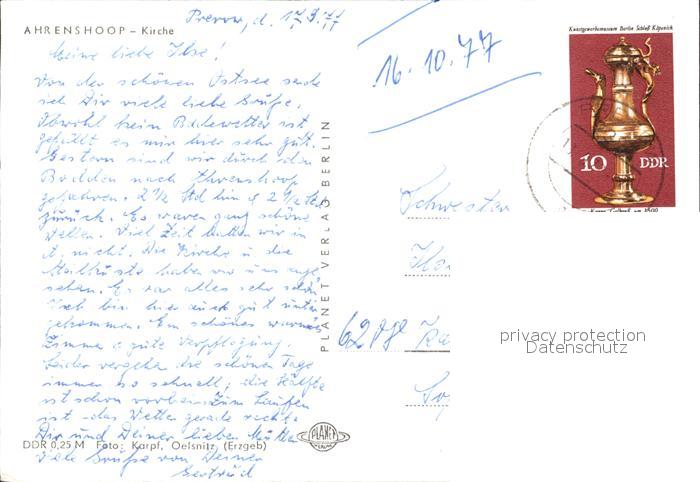 Prerow, d. 17.9.77
AHRENSHOOP – Kirche
Meine liebe Ilse!
Von der schönen Ostsee sende
ich Dir viele liebe Grüße.
Obwohl kein Badewetter ist
gefällt es mir hier sehr gut.
Gestern sind wir durch den
Bodden nach Ahrenshoop
gefahren. 2½ Std hin & 2½ Std
zurück. Es waren ganz schöne
Wellen. Viel Zeit hatten wir in
A. nicht. Die Kirche u. die
Steilküste haben wir uns ange
sehen. Es war alles sehr schön
Ich bin hier auch gut unter
gekommen. Ein schönes warmes
Zimmer & gute Verpflegung.
Leider vergehen die schönen Tage
immer so schnell; die Hälfte
ist schon vorbei. Zum Laufen
ist das Wetter gerade recht.
Dir und Deiner lieben
viele Grüße von Deiner
Gertrud
DDR 0,25 M Foto: Karpf, Oelsnitz (Erzgeb)
PLANET VERLAG BERLIN
PLANET
16.10.77
Kunstgewerbemuseum Berlin Schloß Köpenick
10 DDR
Schwester
privacy protection
Datenschutz